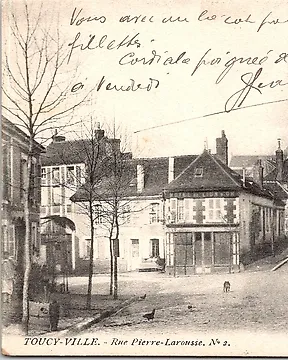 Vous avez un colcot pour
fillettes.
Cordiale poignée de
à Vendredi
Jean
TOUCY-VILLE. - Rue Pierre-Larousse. Nº 2.